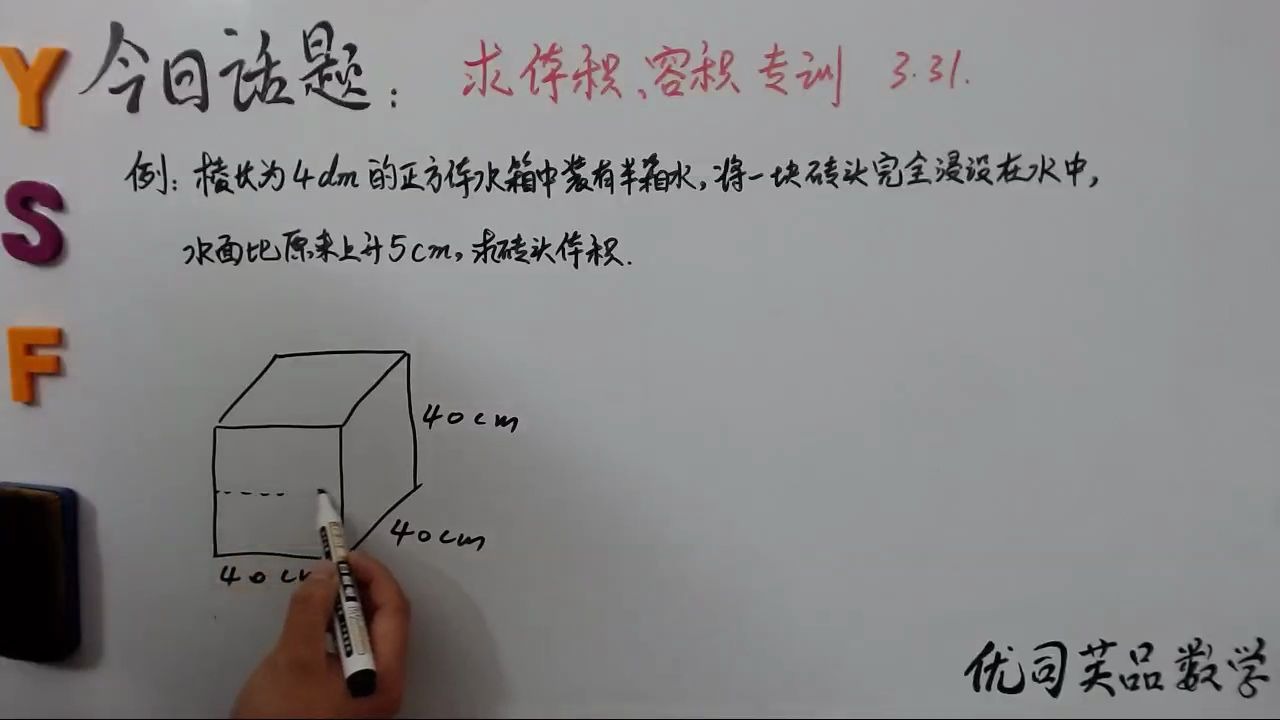 Y
S
F
今日话题： 求体积、容积专训 3.31.
例：棱长为4dm的正方体水箱中装有半箱水，将一块砖头完全浸没在水中，
水面比原来上升5cm，求砖头体积.
40cm
40cm
40c
优司芙品数学